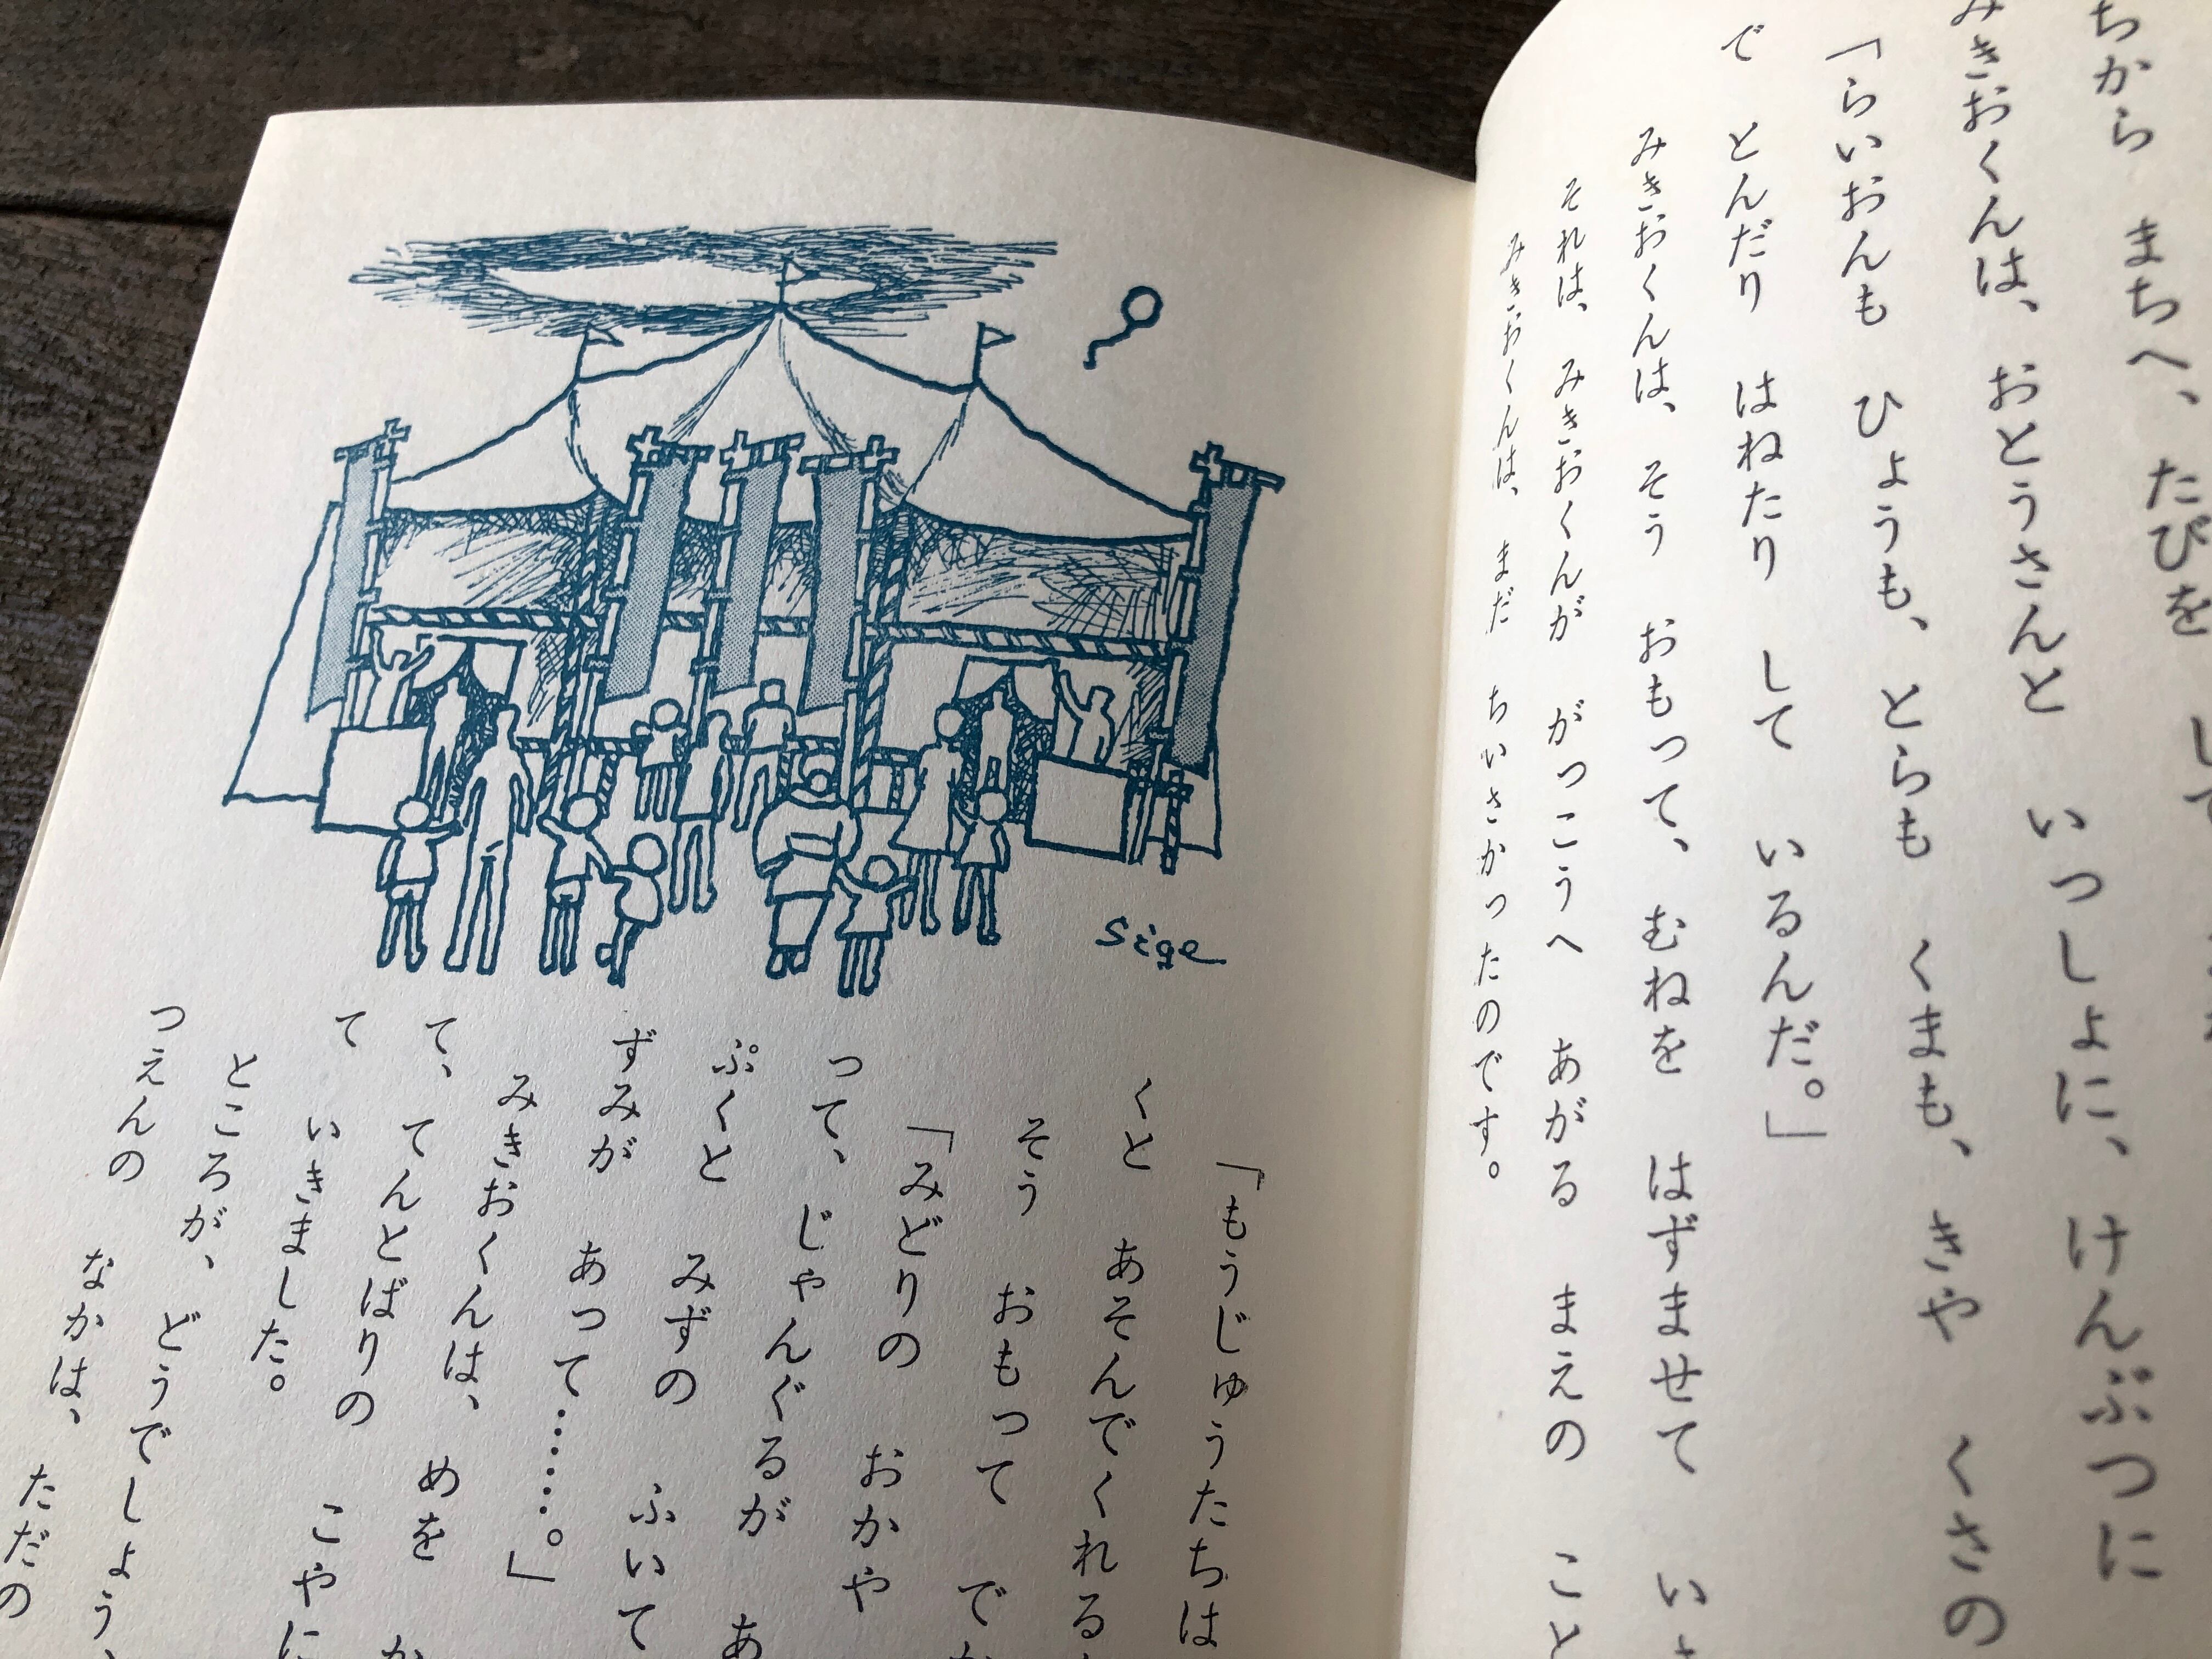 ちから　まちへ、たびを　して
みきおくんは、おとうさんと　いっしょに、けんぶつに
「らいおんも　ひょうも、とらも　くまも、きや　くさの
で　とんだり　はねたり　して　いるんだ。」
みきおくんは、そう　おもって、むねを　はずませて　い
それは、みきおくんが　がっこうへ　あがる　まえの　こと
みきおくんは、まだ　ちいさかったのです。
「もうじゅうたちは
くと　あそんでくれる
そう　おもって　で
「みどりの　おかや
って、じゃんぐるが　あ
ぷくと　みずの　ふいて
ずみが　あって……。」
みきおくんは、めを　か
て、てんとばりの　こやに
て　いきました。
ところが、どうでしょう、
つえんの　なかは、ただの
Sige